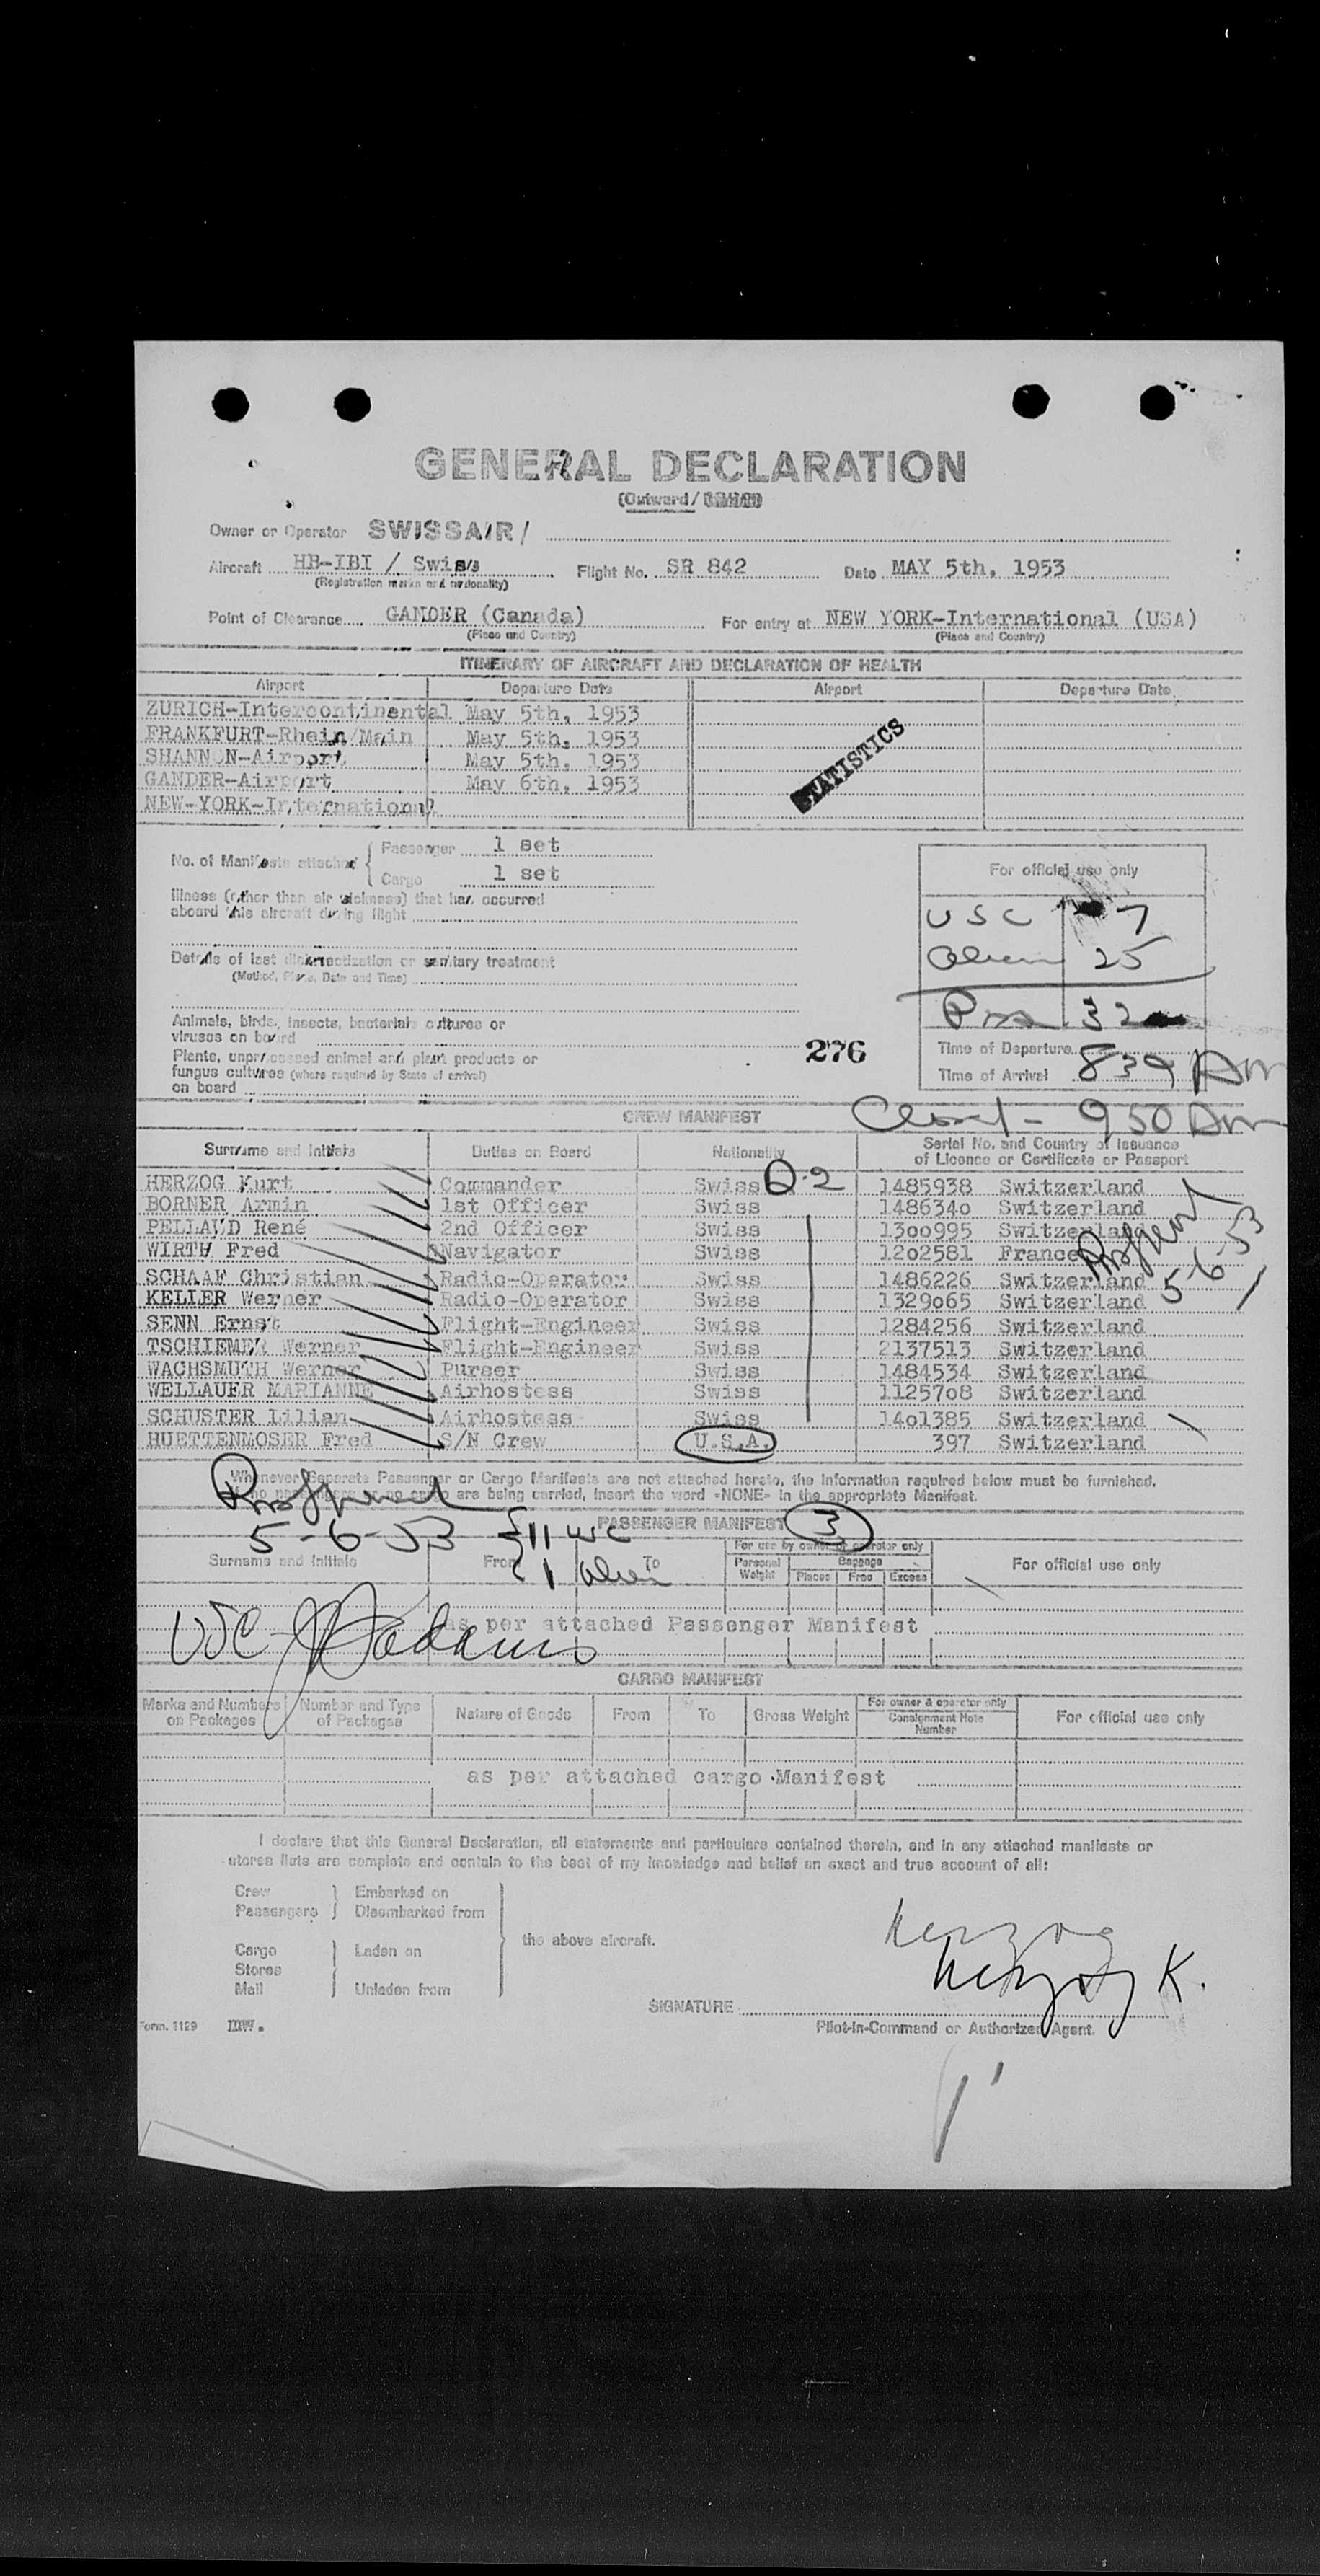 GENERAL DECLARATION
(Outward/
Owner or Operator SWISSAIR/
Aircraft HB-IBI / Swiss Flight No. SR 842 Date MAY 5th, 1953
(Registration marks and nationality)
Point of Clearance GANDER (Canada) For entry at NEW YORK-International (USA)
(Place and Country) (Place and Country)
ITINERARY OF AIRCRAFT AND DECLARATION OF HEALTH
Airport Departure Date Airport Departure Date
ZURICH-Intercontinental May 5th, 1953
FRANKFURT-Rhein/Main May 5th, 1953
SHANNON-Airport May 5th, 1953
GANDER-Airport May 6th, 1953
NEW-YORK-International
STATISTICS
No. of Manifests attached { Passenger 1 set
Cargo 1 set
For official use only
Illness (other than air sickness) that has occurred
aboard this aircraft during flight
USC 7
Alien 25
Details of last disinsectization or sanitary treatment
(Method, Place, Date and Time)
Pax 32
Animals, birds, insects, bacterial cultures or
viruses on board
276
Time of Departure
Plants, unprocessed animal and plant products or
fungus cultures (where required by State of arrival)
on board
Time of Arrival 839 Am
CREW MANIFEST
Closed - 950 Am
Surname and Initials Duties on Board Nationality Serial No. and Country of Issuance
of Licence or Certificate or Passport
Q-2
HERZOG Kurt Commander Swiss 1485938 Switzerland
BORNER Armin 1st Officer Swiss 1486340 Switzerland
PELLAUD René 2nd Officer Swiss 1300995 Switzerland
WIRTH Fred Navigator Swiss 1202581 France
SCHAAF Christian Radio-Operator Swiss 1486226 Switzerland
KELLER Werner Radio-Operator Swiss 1329065 Switzerland
SENN Ernst Flight-Engineer Swiss 1284256 Switzerland
TSCHIEMER Werner Flight-Engineer Swiss 2137513 Switzerland
WACHSMUTH Werner Purser Swiss 1484534 Switzerland
WELLAUER MARIANNE Airhostess Swiss 1125708 Switzerland
SCHUSTER Lilian Airhostess Swiss 1401385 Switzerland
HUETTENMOSER Fred S/N Crew U.S.A. 397 Switzerland
5-6-53
Whenever Separate Passenger or Cargo Manifests are not attached hereto, the information required below must be furnished.
are being carried, insert the word «NONE» in the appropriate Manifest.
5-6-53
PASSENGER MANIFEST 3
11
1 Alien
Surname and Initials From To For use by owner or operator only For official use only
Personal Weight Baggage
Pieces Free Excess
as per attached Passenger Manifest
USC Adams
CARGO MANIFEST
Marks and Numbers on Packages Number and Type of Packages Nature of Goods From To Gross Weight For owner & operator only For official use only
Consignment Note Number
as per attached cargo Manifest
I declare that this General Declaration, all statements and particulars contained therein, and in any attached manifests or
stores lists are complete and contain to the best of my knowledge and belief an exact and true account of all:
Crew } Embarked on
Passengers } Disembarked from
the above aircraft.
Cargo } Laden on
Stores
Mail } Unladen from
Herzog
Herzog K.
SIGNATURE
Pilot-in-Command or Authorized Agent.
Form. 1129 mw.